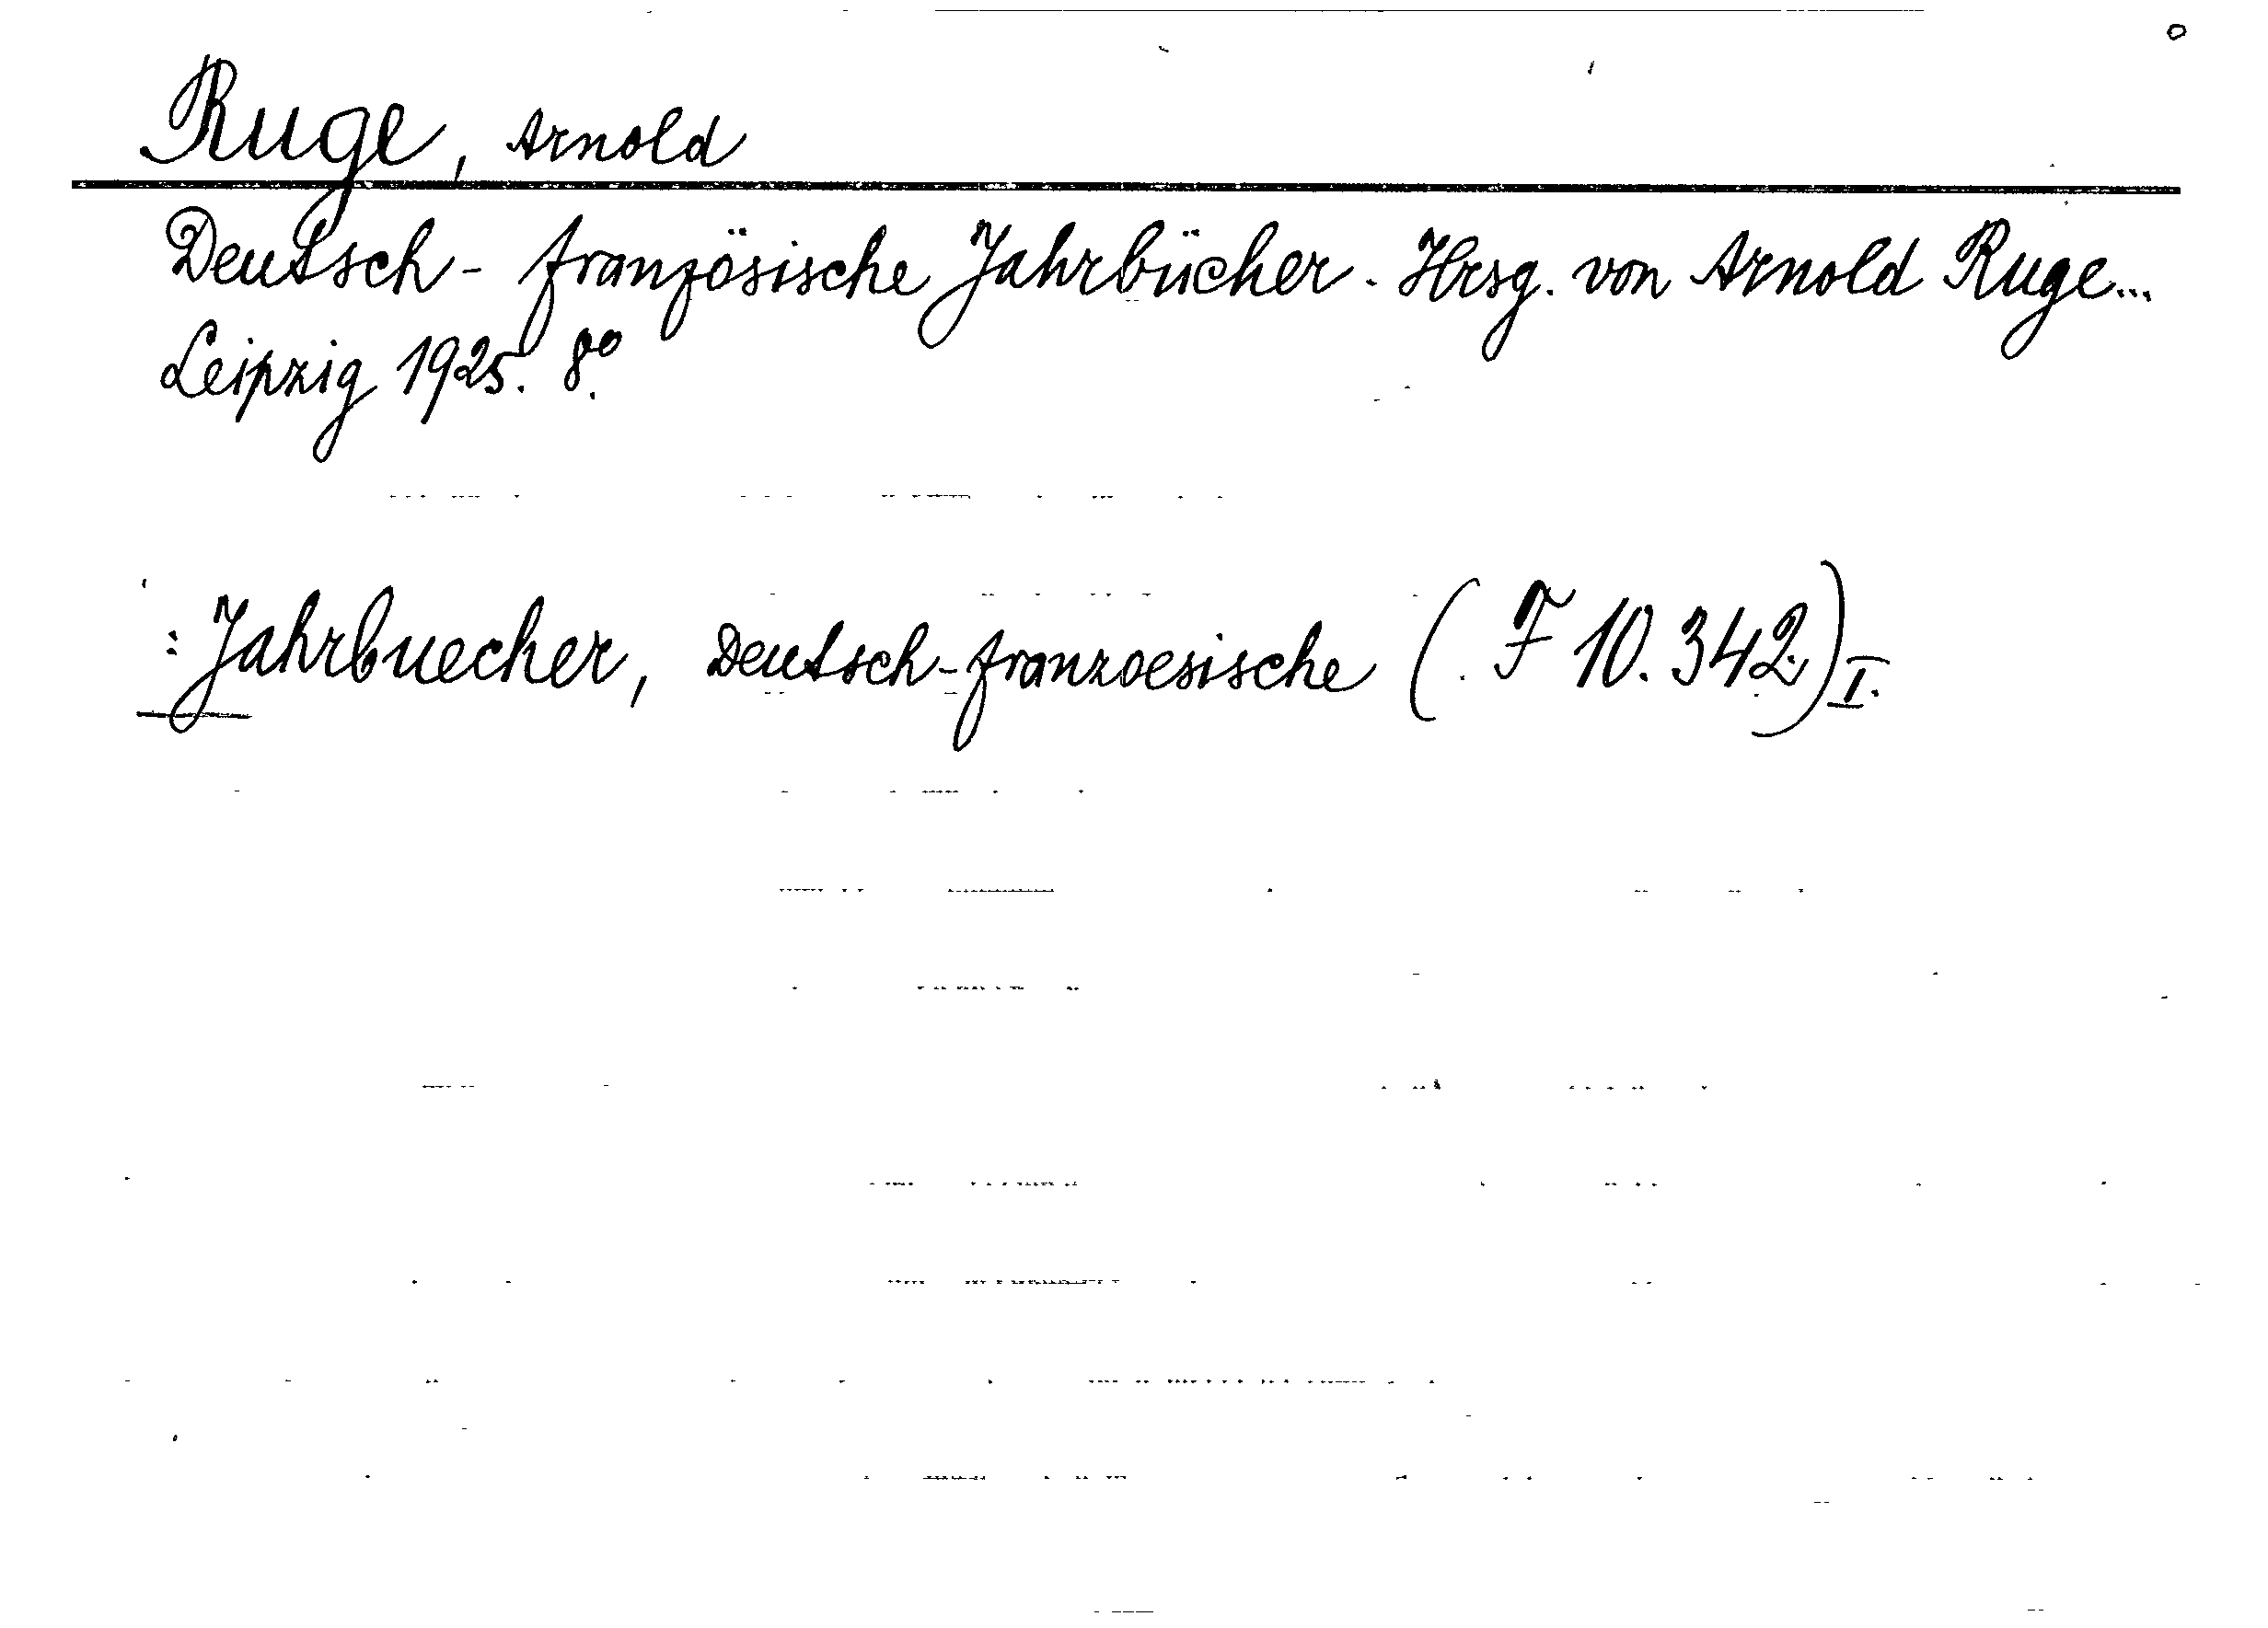 Ruge, Arnold
Deutsch-französische Jahrbücher. Hrsg. von Arnold Ruge...
Leipzig 1925. 8°.
: Jahrbuecher, Deutsch-franzoesische (F 10.342) I.